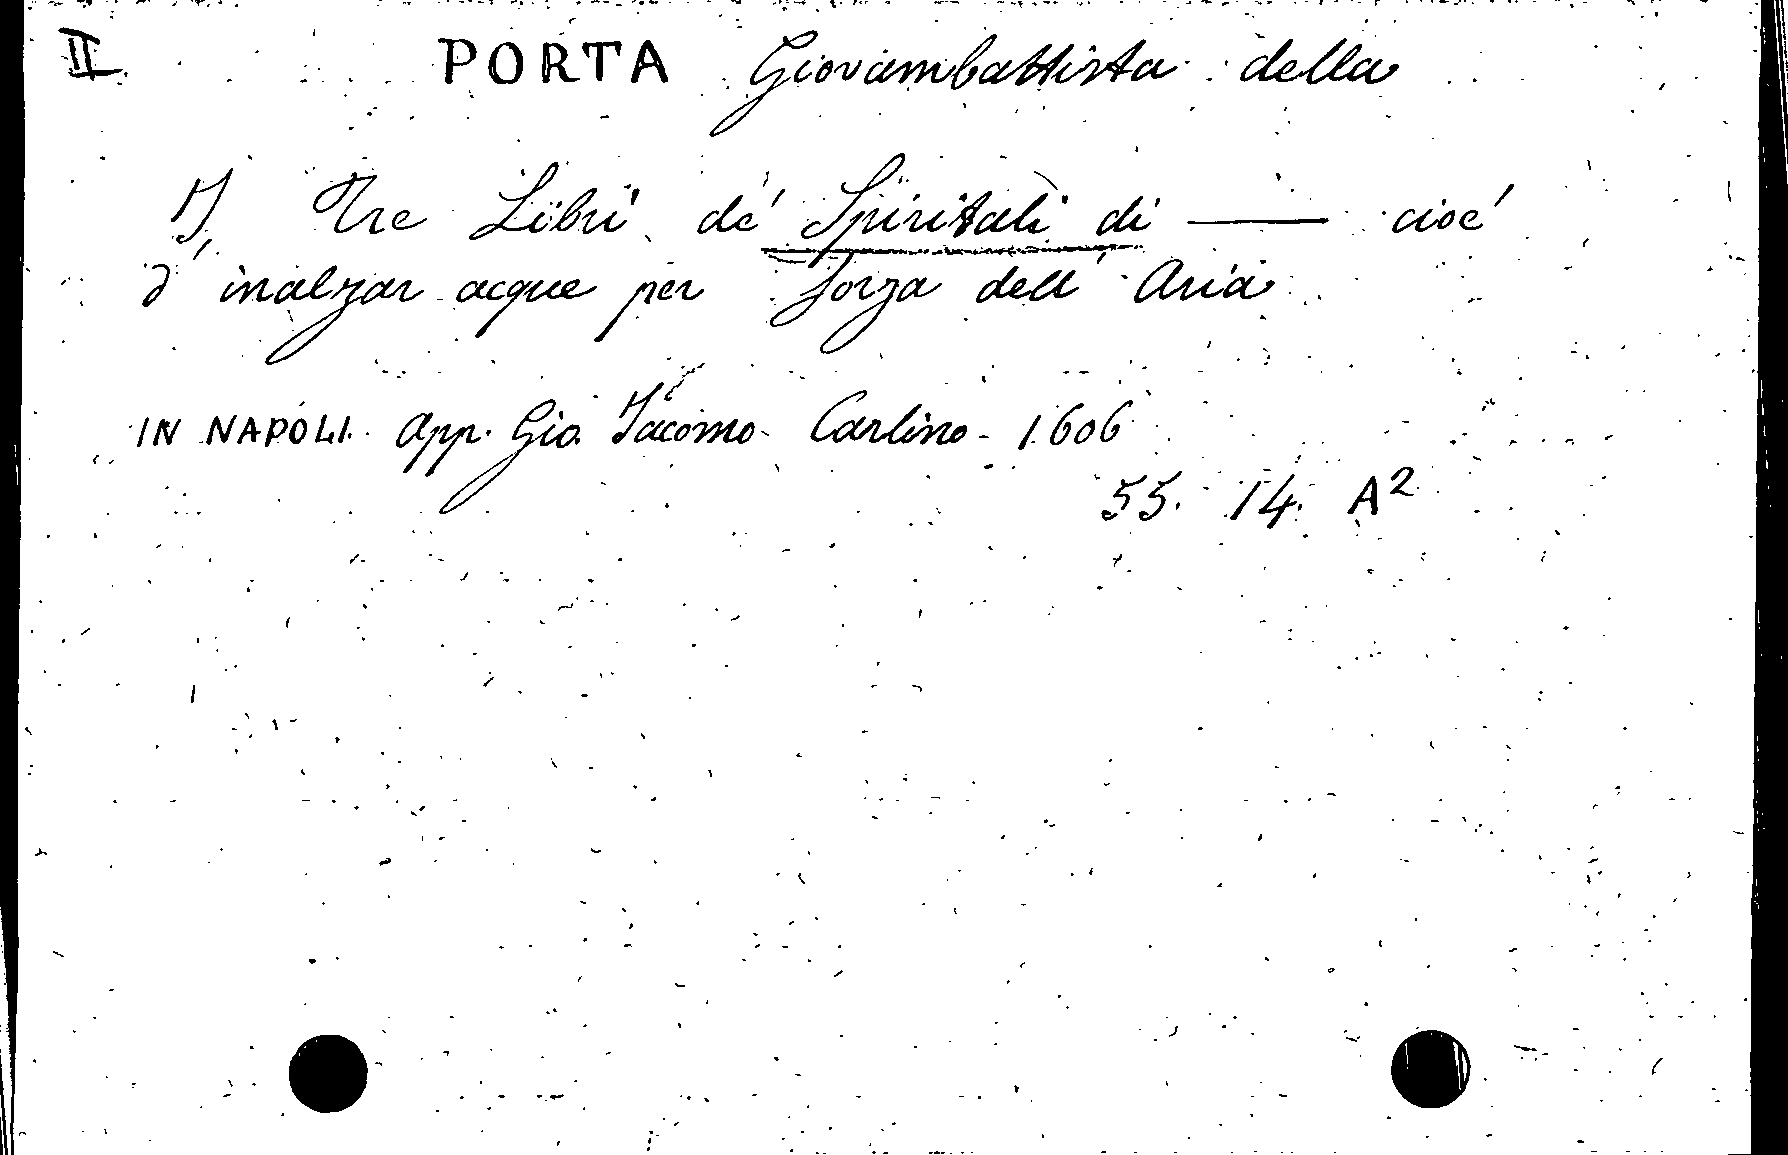 II PORTA Giovambattista della
I, Tre Libri de' Spiritali di —— cioé
d' inalzar acque per forza dell' Aria
IN NAPOLI. App. Gio. Iacomo Carlino - 1606
55. 14. A2